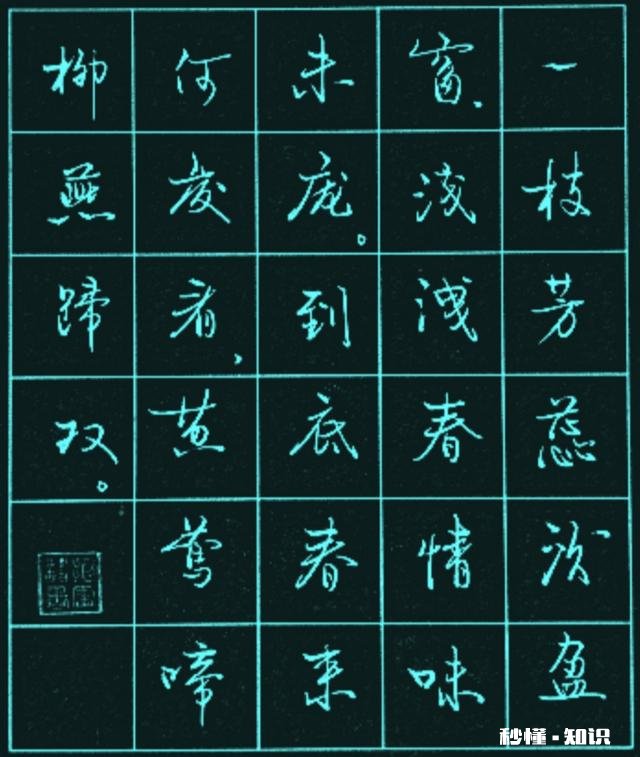 一枝芳蕊沁盈
窗、浅洩春情味
未庞。到底春来
何处看，黄莺啼
柳燕蹄双。
秒懂·知识